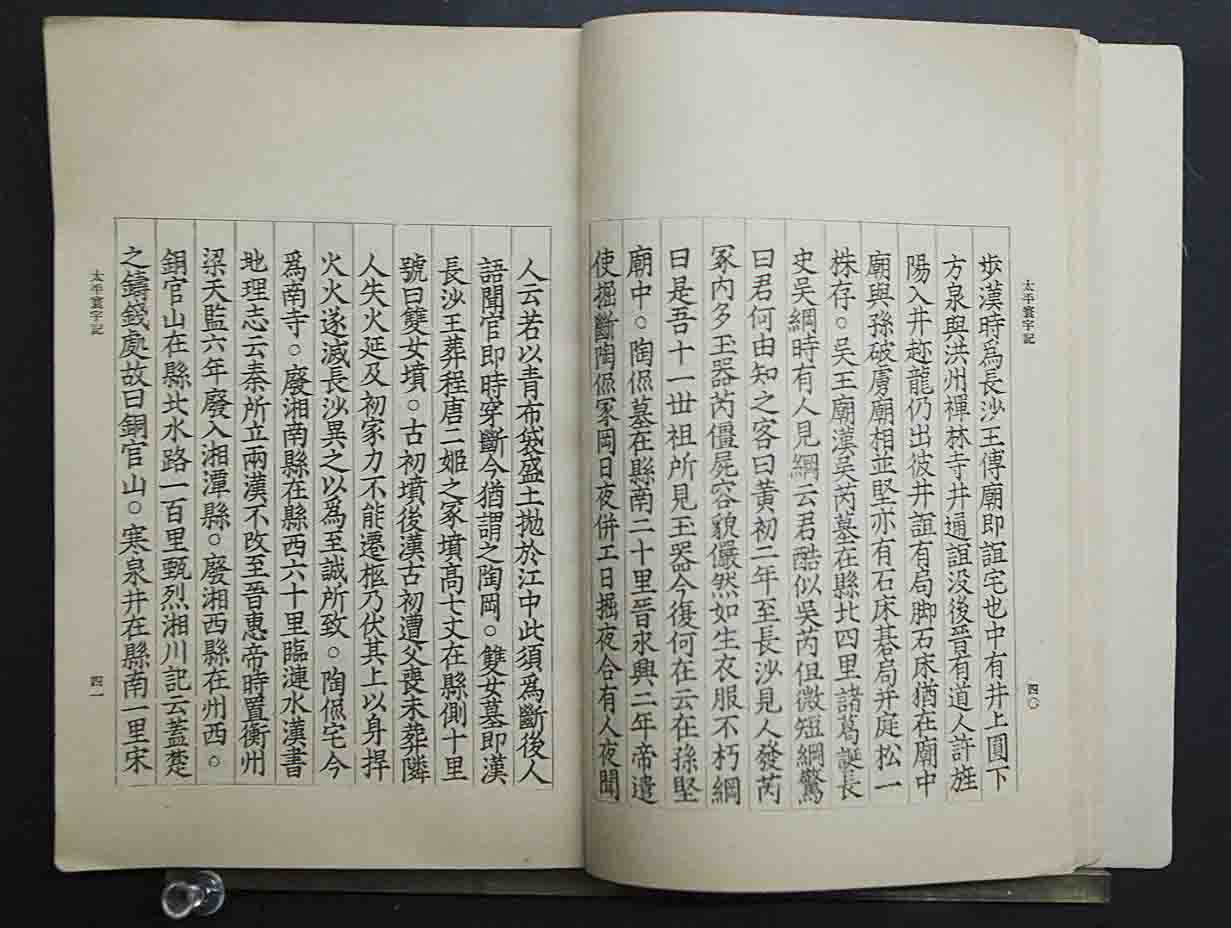 太平寰宇記
四〇
步漢時爲長沙王傅廟即誼宅也中有井上圓下
方泉與洪州禪林寺井通誼没後晉有道人許旌
陽入井趂龍仍出彼井誼有局脚石床猶在廟中
廟與孫破虜廟相並堅亦有石床碁局并庭松一
株存。吴王廟漢吴芮墓在縣北四里諸葛誕長
史吴綱時有人見綱云君酷似吴芮但微短綱驚
曰君何由知之客曰黄初二年至長沙見人發芮
冢内多玉器芮僵屍容貌儼然如生衣服不朽綱
曰是吾十一世祖所見玉器今復何在云在孫堅
廟中。陶侃墓在縣南二十里晉永興二年帝遣
使掘斷陶侃冢岡日夜併工日掘夜合有人夜聞
人云若以青布袋盛土抛於江中此須爲斷後人
語聞官即時穿斷今猶謂之陶岡。雙女墓即漢
長沙王葬程唐二姬之冢墳高七丈在縣側十里
號曰雙女墳。古初墳後漢古初遭父喪未葬隣
人失火延及初家力不能遷柩乃伏其上以身捍
火火遂滅長沙異之以爲至誠所致。陶侃宅今
爲南寺。廢湘南縣在縣西六十里臨漣水漢書
地理志云秦所立兩漢不改至晉惠帝時置衡州
梁天監六年廢入湘潭縣。廢湘西縣在州西。
銅官山在縣北水路一百里甄烈湘川記云蓋楚
之鑄錢處故曰銅官山。寒泉井在縣南一里宋
太平寰宇記
四一